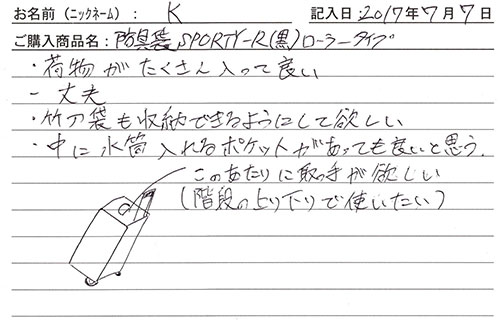 お名前（ニックネーム）： K 記入日：2017年7月7日
ご購入商品名：防具袋SPORTY-R(黒)ローラータイプ
・荷物がたくさん入って良い
- 丈夫
・竹刀袋も収納できるようにして欲しい
・中に水筒入れるポケットがあっても良いと思う.
このあたりに取っ手が欲しい
(階段の上り下りで使いたい)